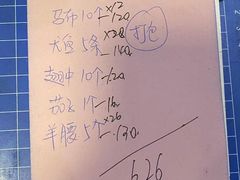 马布10个 ×12 120
大鱼5条 ×28 140
打包
翅中10个 120
茄子1个 16
羊腰5个 ×26 130
626